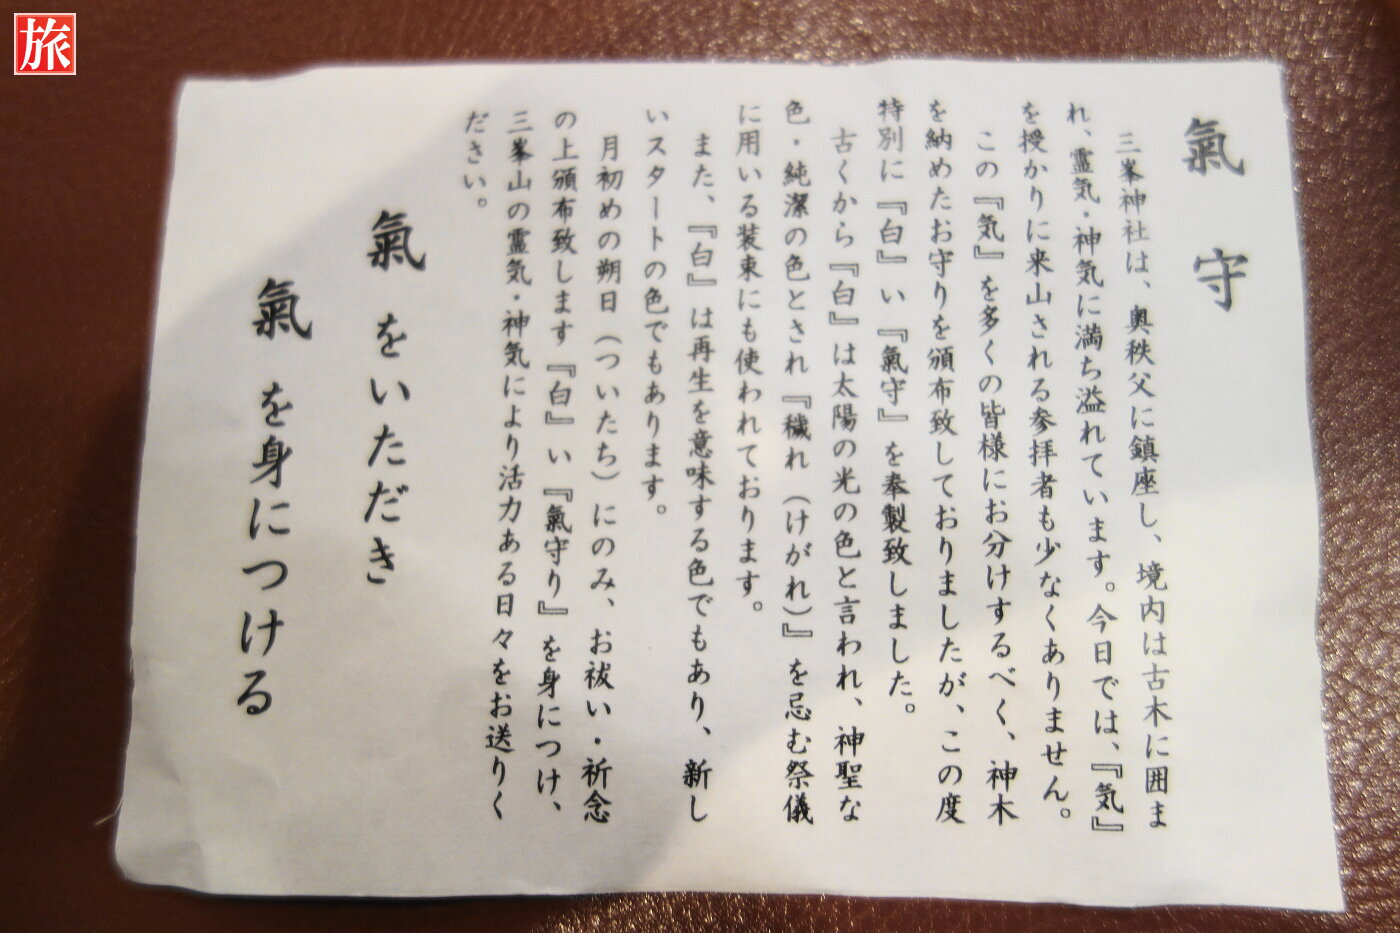 旅
氣守
三峯神社は、奥秩父に鎮座し、境内は古木に囲ま
れ、霊気・神気に満ち溢れています。今日では、『気』
を授かりに来山される参拝者も少なくありません。
この『気』を多くの皆様にお分けするべく、神木
を納めたお守りを頒布致しておりましたが、この度
特別に『白』い『氣守』を奉製致しました。
古くから『白』は太陽の光の色と言われ、神聖な
色・純潔の色とされ『穢れ（けがれ）』を忌む祭儀
に用いる装束にも使われております。
また、『白』は再生を意味する色でもあり、新し
いスタートの色でもあります。
月初めの朔日（ついたち）にのみ、お祓い・祈念
の上頒布致します『白』い『氣守り』を身につけ、
三峯山の霊気・神気により活力ある日々をお送りく
ださい。
氣をいただき
氣を身につける